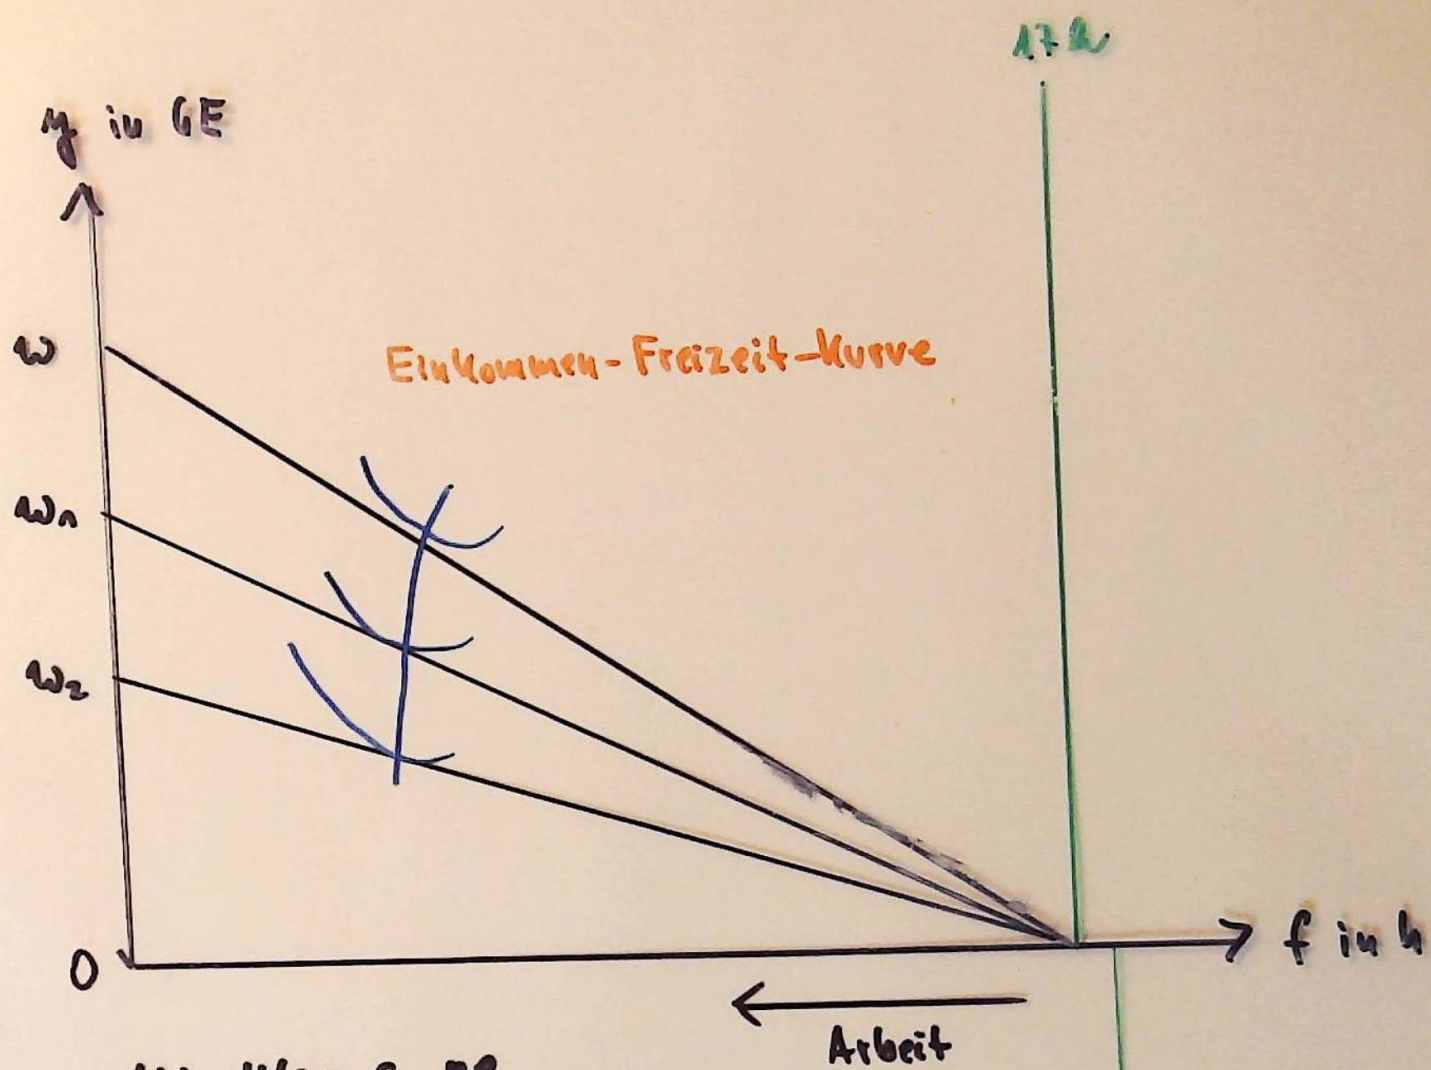 17 h
y in GE
w
Einkommen-Freizeit-Kurve
w₁
w₂
0
f in h
Arbeit